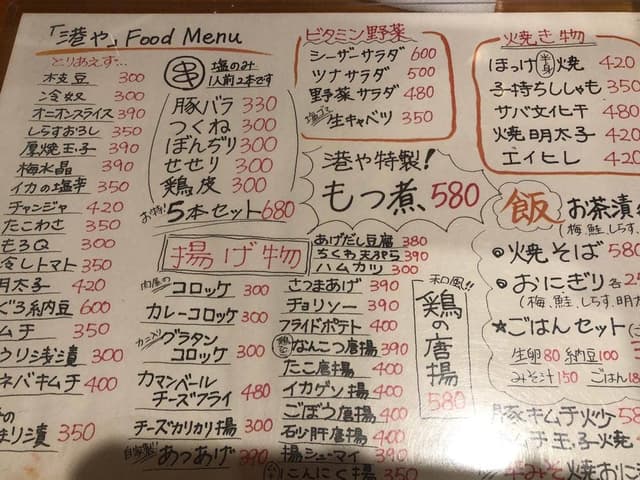 「港や」Food Menu
とりあえず…
枝豆 300
冷奴 300
オニオンスライス 390
しらすおろし 350
厚焼玉子 390
梅水晶 390
イカの塩辛 350
チャンジャ 420
たこわさ 350
もろQ 300
冷しトマト 350
明太子 420
ぐろ納豆 600
ムチ 350
ウリ浅漬 300
ネバキムチ 400
まり漬 350
串 塩のみ
1人前2本です
豚バラ 330
つくね 300
ぼんぢり 300
せせり 300
鶏皮 300
お得! 5本セット 680
ビタミン野菜
シーザーサラダ 600
ツナサラダ 500
野菜サラダ 480
生キャベツ 350
焼き物
ほっけ半身焼 420
子持ちししゃも 350
サバ文化干 480
焼明太子 420
エイヒレ 420
港や特製!
もつ煮 580
揚げ物
肉屋のコロッケ 300
カレーコロッケ 300
カニ入りグラタンコロッケ 300
カマンベールチーズフライ 480
チーズカリカリ揚 300
自家製!!あつあげ 390
あげだし豆腐 380
ちくわ天ぷら 390
ハムカツ 300
さつまあげ 390
チョリソー 390
フライドポテト 400
なんこつ唐揚 390
たこ唐揚 400
イカゲソ揚 400
ごぼう唐揚 400
石少肝唐揚 400
揚シューマイ 350
にんにく揚 350
和風!!
鶏の唐揚 580
飯
お茶漬
(梅、鮭、しらす、
焼そば 580
おにぎり各
(梅、鮭、しらす、明太
★ごはんセット
生卵 80 納豆 100
みそ汁 150 ごはん
豚キムチ火ケ 580
ムチ玉子焼
みそ焼おに